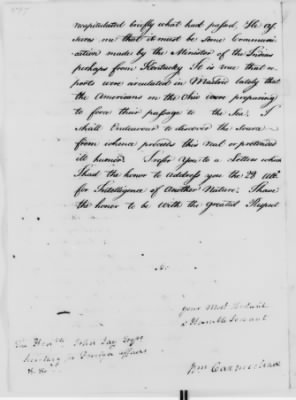 recapitulated briefly what had passed. He as
sures me that it must be some Communi-
cation made by the Minister of the Indies
perhaps from Kentucky. It is true that re
ports were circulated in Madrid lately that
the Americans on the Ohio were preparing
to force their passage to the Sea; I
shall Endeavour to discover the Source
from whence proceeds this real or pretended
ill humor. I refer You to a Letter which
I had the honor to Address you the 29 Ulto.
for Intelligence of Another Nature. I have
the honor to be with the greatest Respect
Your Most Obedient
& Humble Servant
Wm. Carmichael
The Honble. John Jay Esqre.
Secretary for Foreign Affairs